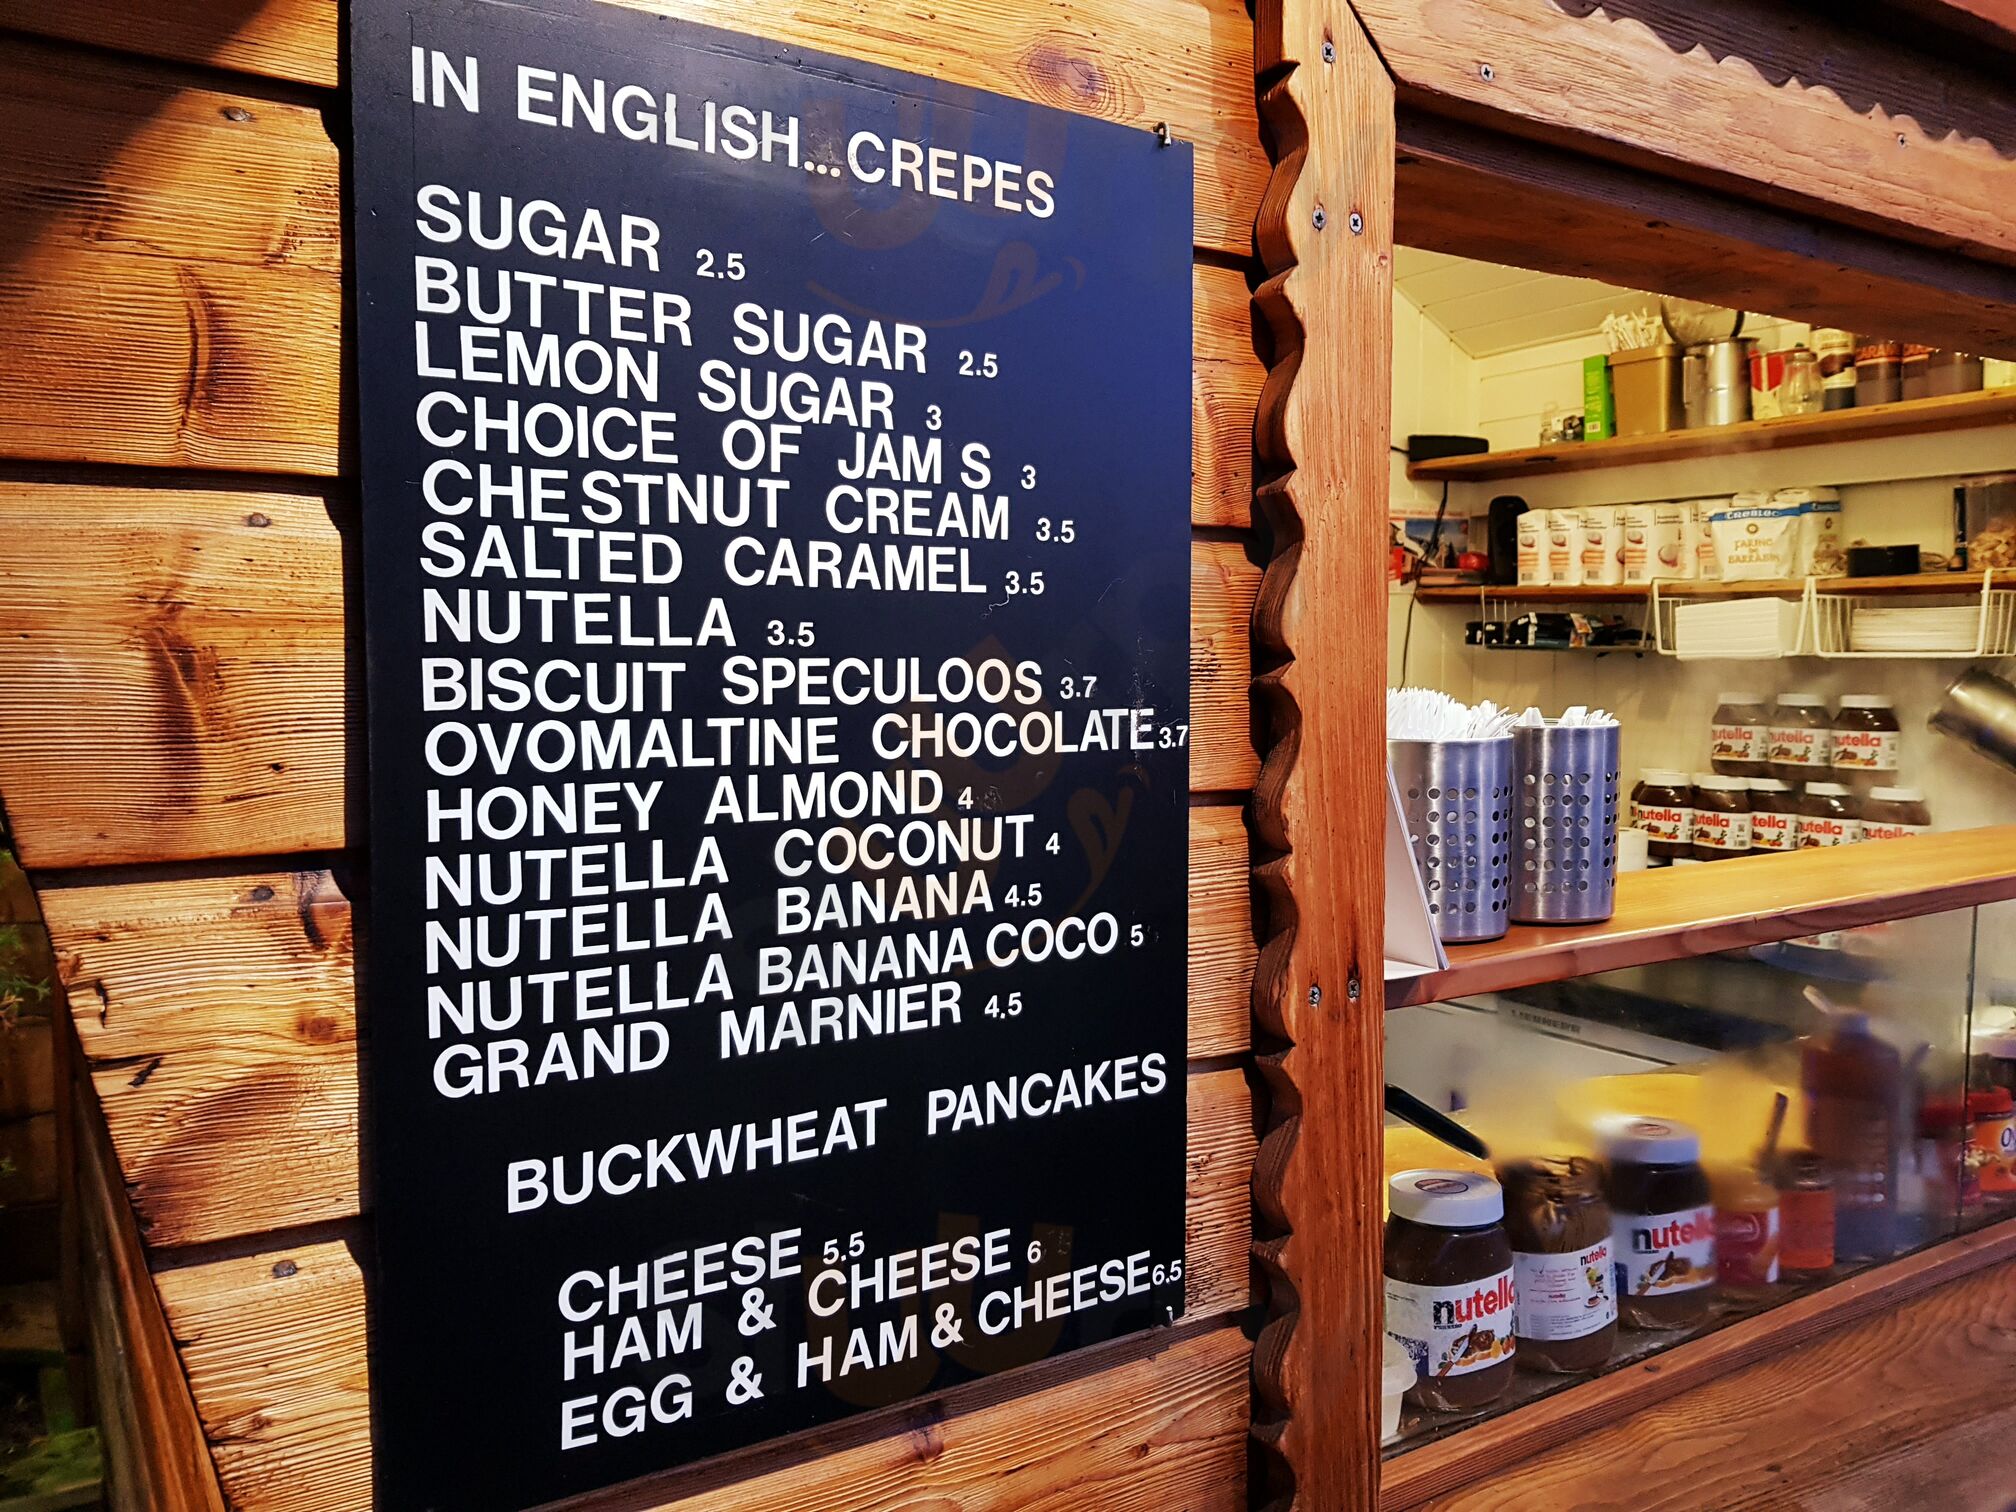 IN ENGLISH...CREPES
SUGAR 2.5
BUTTER SUGAR 2.5
LEMON SUGAR 3
CHOICE OF JAMS 3
CHESTNUT CREAM 3.5
SALTED CARAMEL 3.5
NUTELLA 3.5
BISCUIT SPECULOOS 3.7
OVOMALTINE CHOCOLATE 3.7
HONEY ALMOND 4
NUTELLA COCONUT 4
NUTELLA BANANA 4.5
NUTELLA BANANA COCO 5
GRAND MARNIER 4.5
BUCKWHEAT PANCAKES
CHEESE 5.5
HAM & CHEESE 6
EGG & HAM & CHEESE 6.5
TREBLEC
FARINE
DE
SARRASIN
nutella
nutella
nutella
nutella
nutella
nutella
nutella
nutella
nutella
nutella
nutella